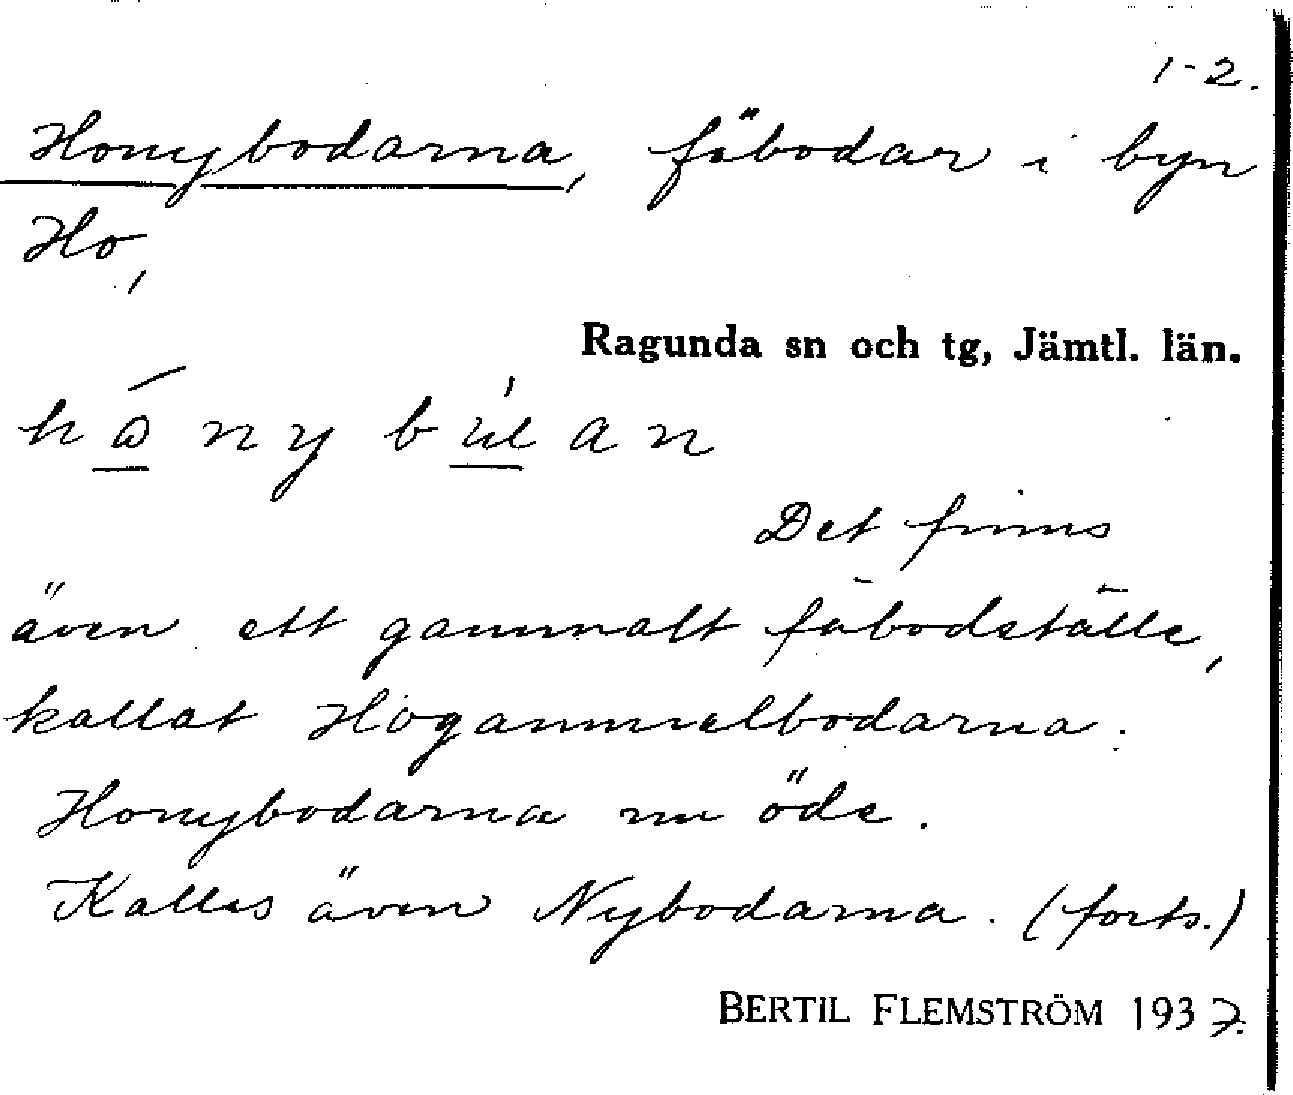 1-2.
Honybodarna, fäbodar i byn
Ho,
Ragunda sn och tg, Jämtl. län.
Det finns
även ett gammalt fäbodställe,
kallat Hogammelbodarna.
Honybodarna nu öde.
Kallas även Nybodarna. (forts.)
BERTIL FLEMSTRÖM 1937.